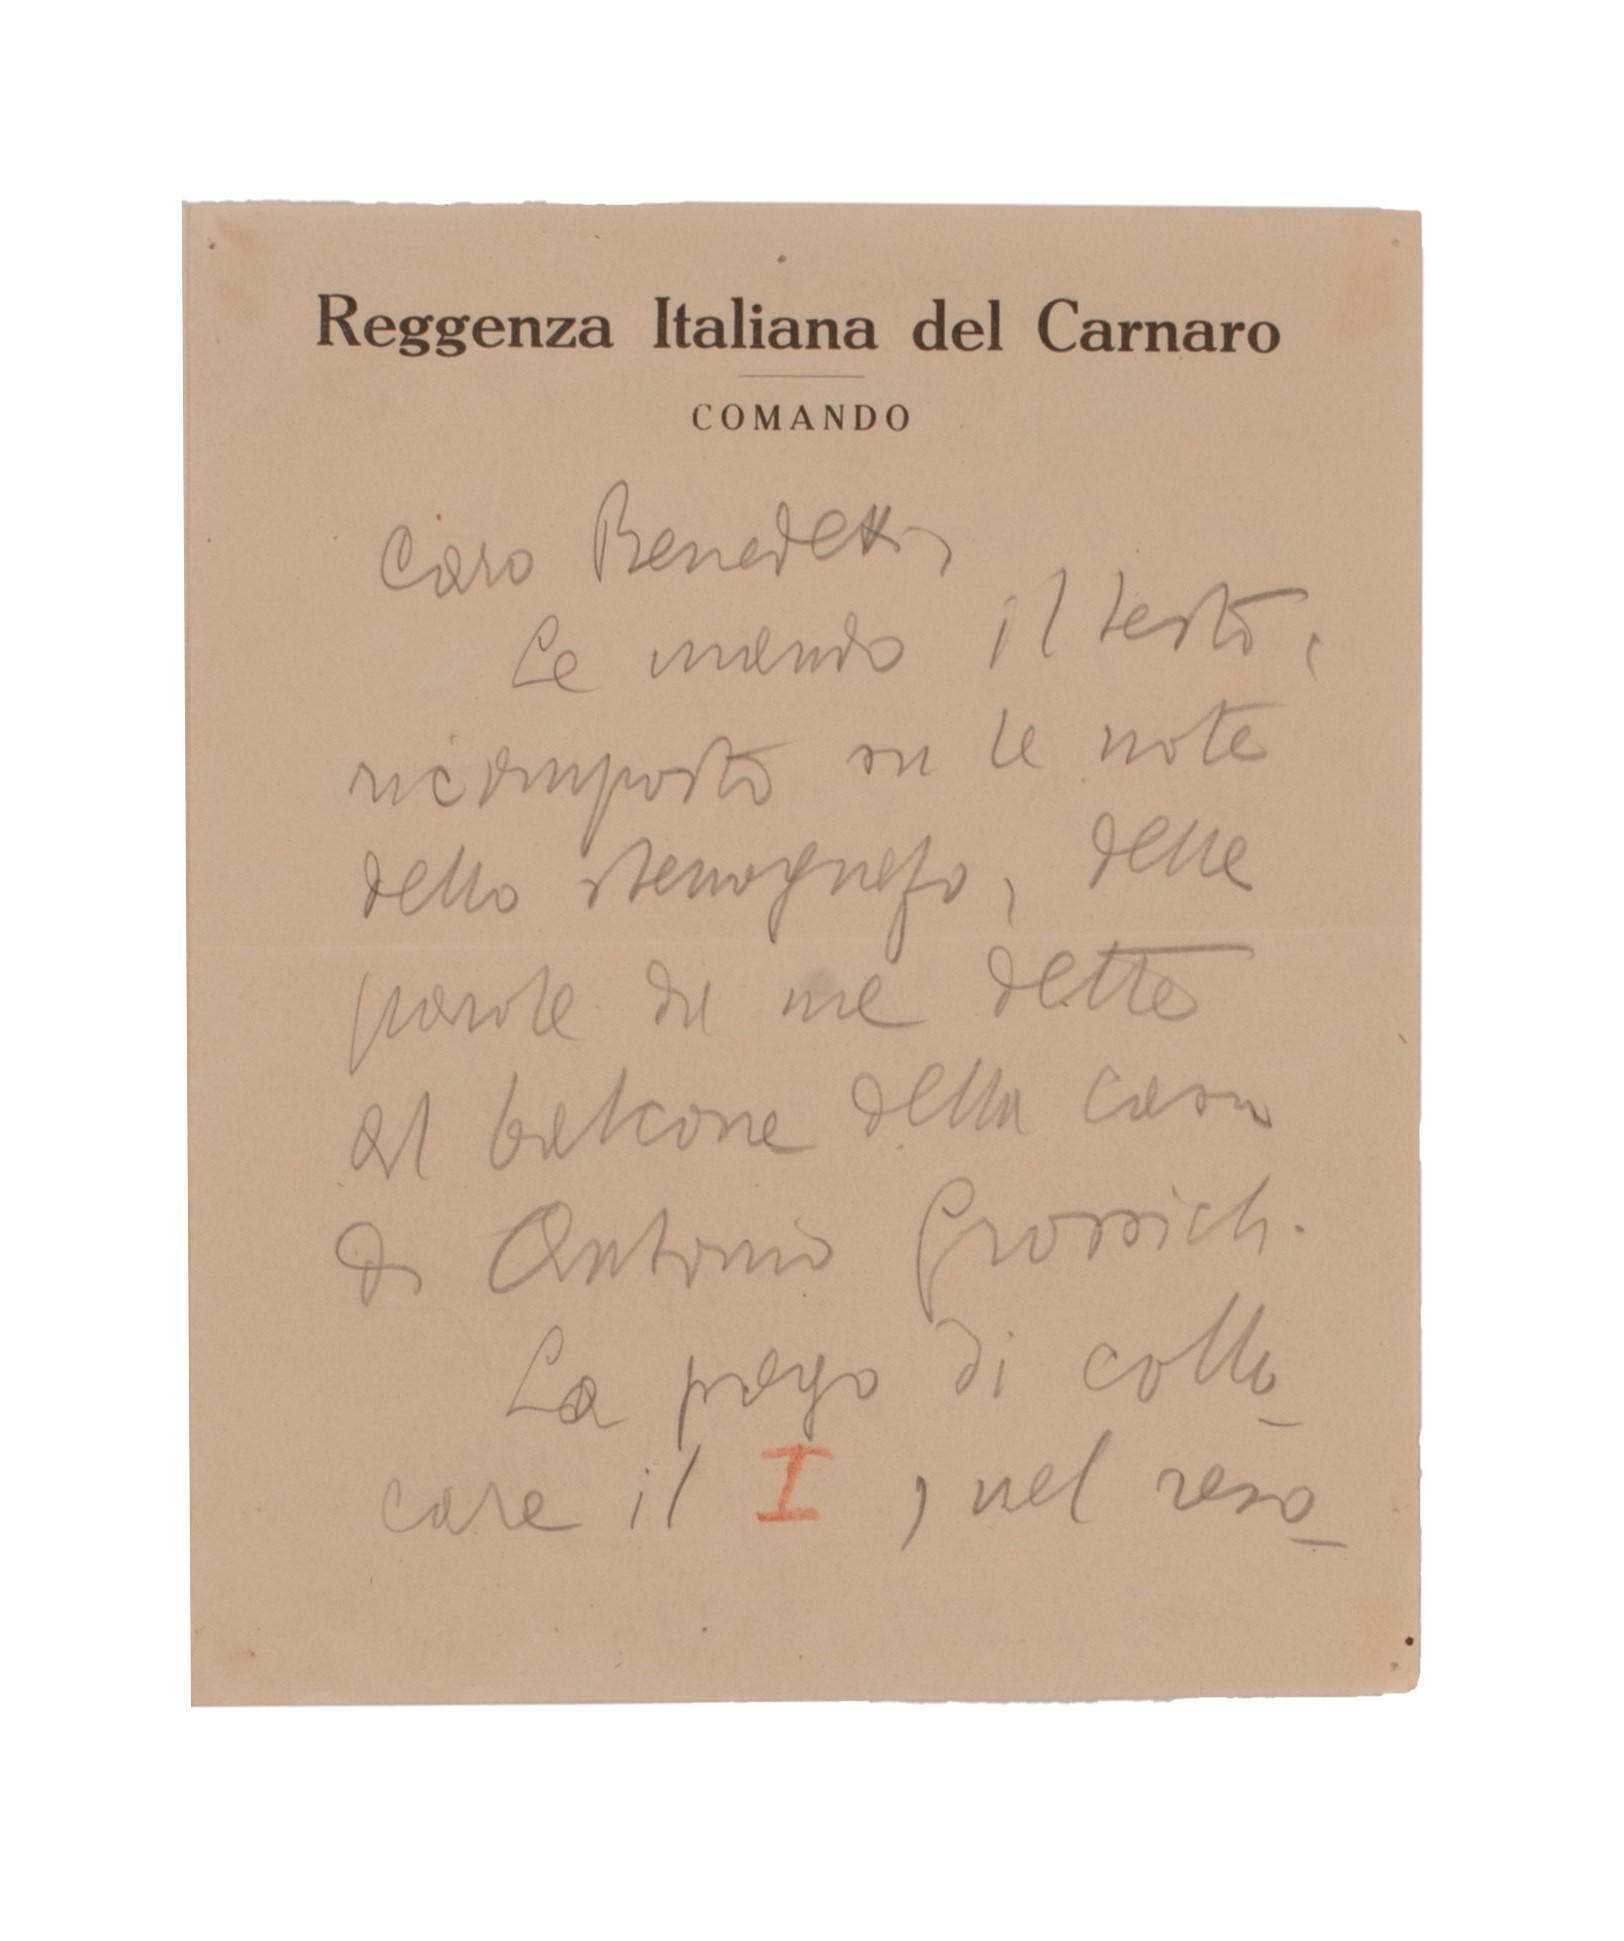 Reggenza Italiana del Carnaro
COMANDO
Caro Benedetti,
Le mando il testo,
ricomposto su le note
dello stenografo, delle
parole da me dette
al balcone della casa
di Antonio Grossich.
La prego di collo-
care il I, nel reso-